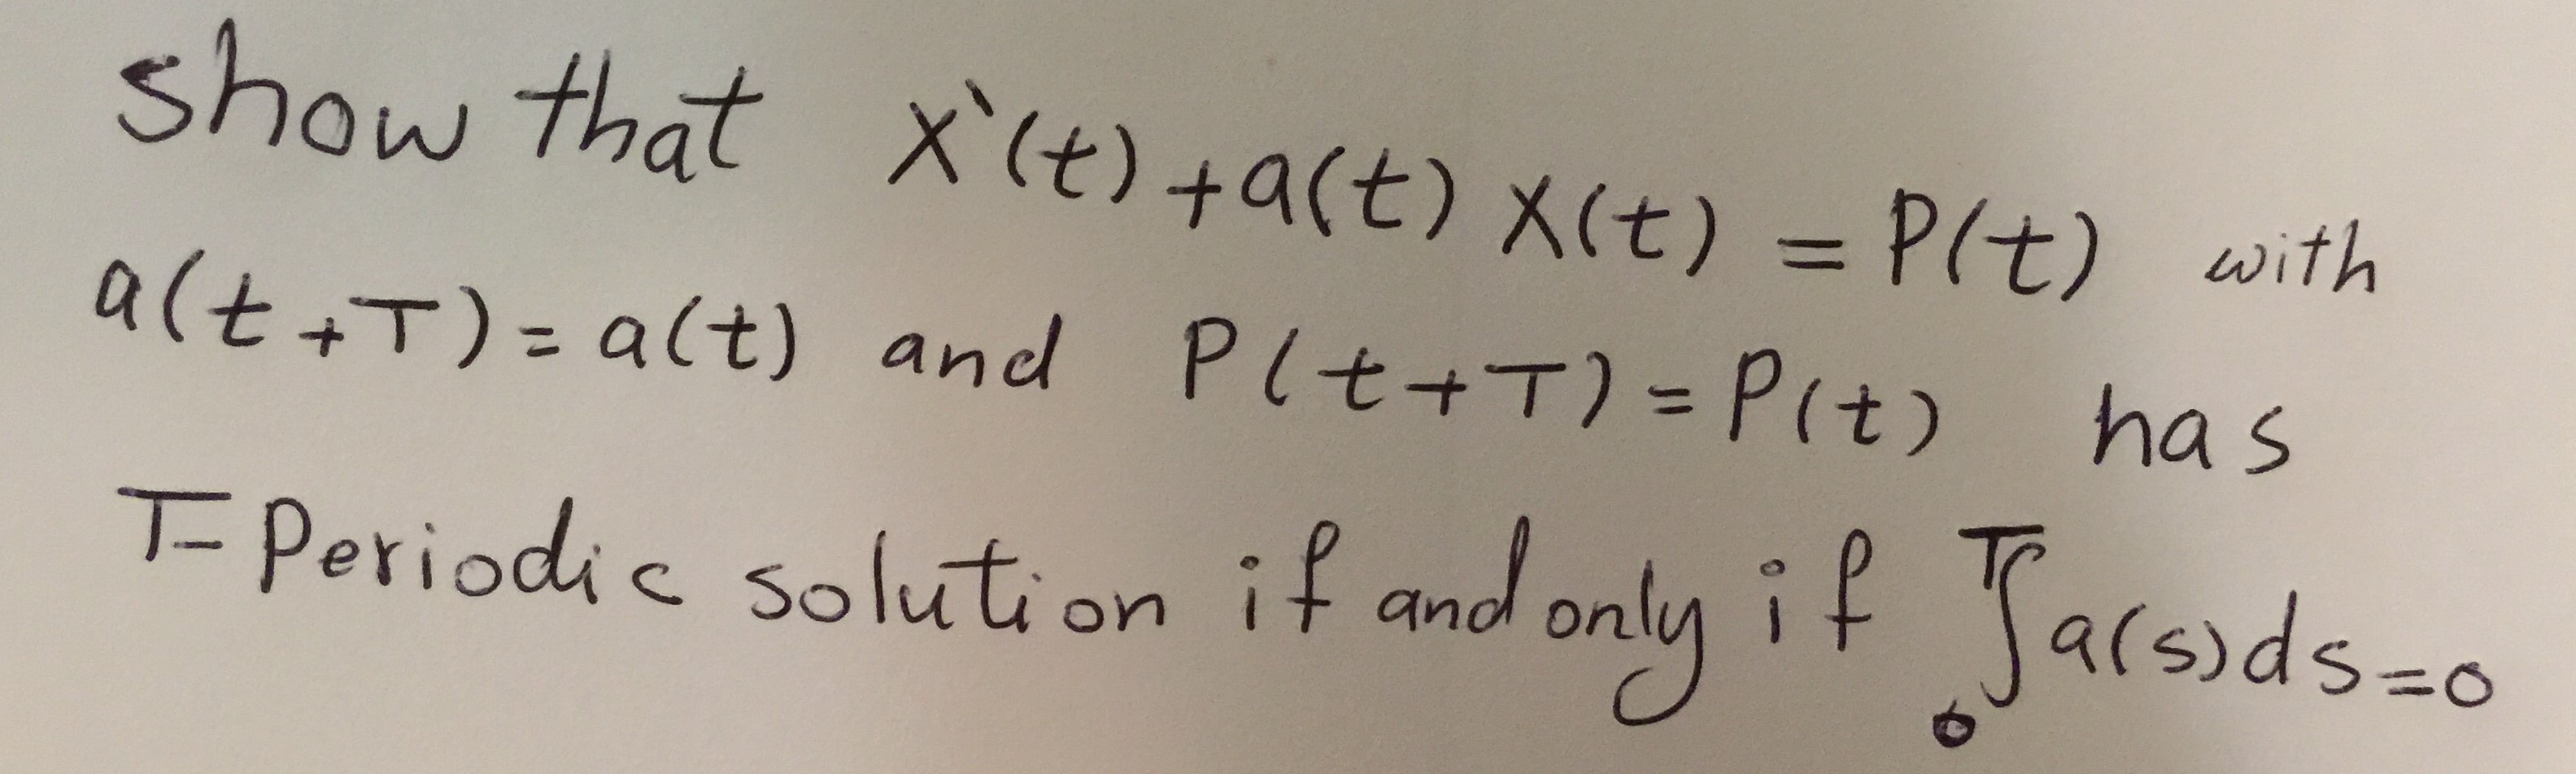 show that X`(t) + a(t) X(t) = P(t) with
a(t+T) = a(t) and P(t+T) = P(t) has
T-Periodic solution if and only if ∫₀ᵀ a(s)ds=0